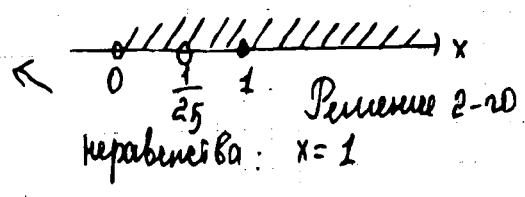 x
0 1/25 1
Решение 2-го
неравенства: x = 1